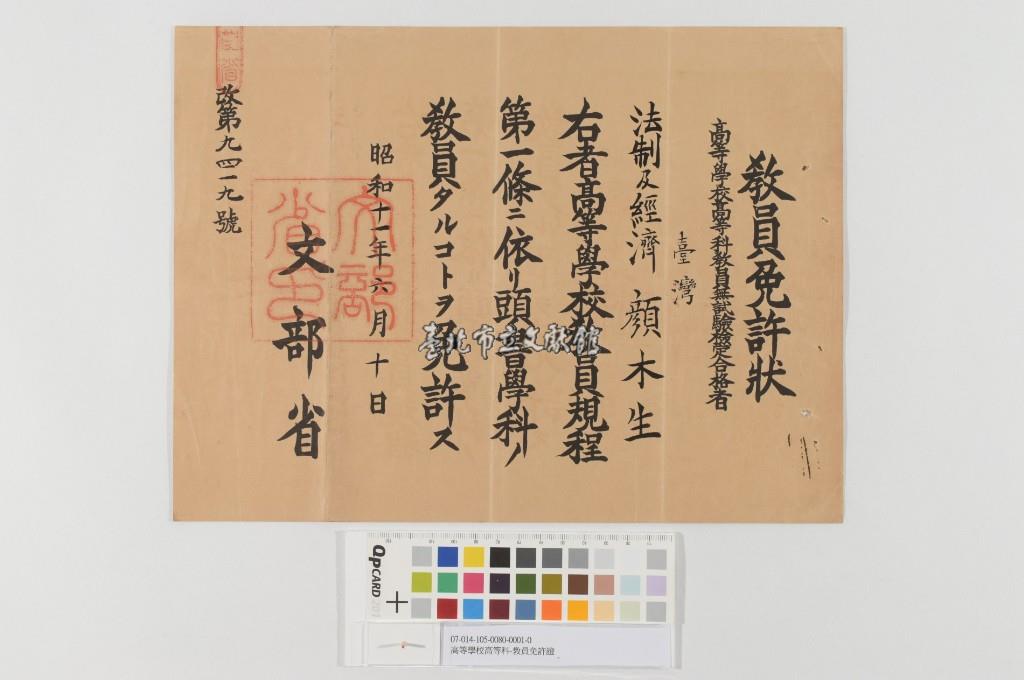 教員免許狀
高等學校高等科教員無試驗檢定合格者
臺灣
法制及經濟 顏木生
右者高等學校教員規程
第一條ニ依リ頭書學科ノ
教員タルコトヲ免許ス
昭和十一年六月十日
文部省
文部省印
改第九四一九號
臺北市立文獻館
QPCARD 201
07-014-105-0080-0001-0
高等學校高等科-教員免許證